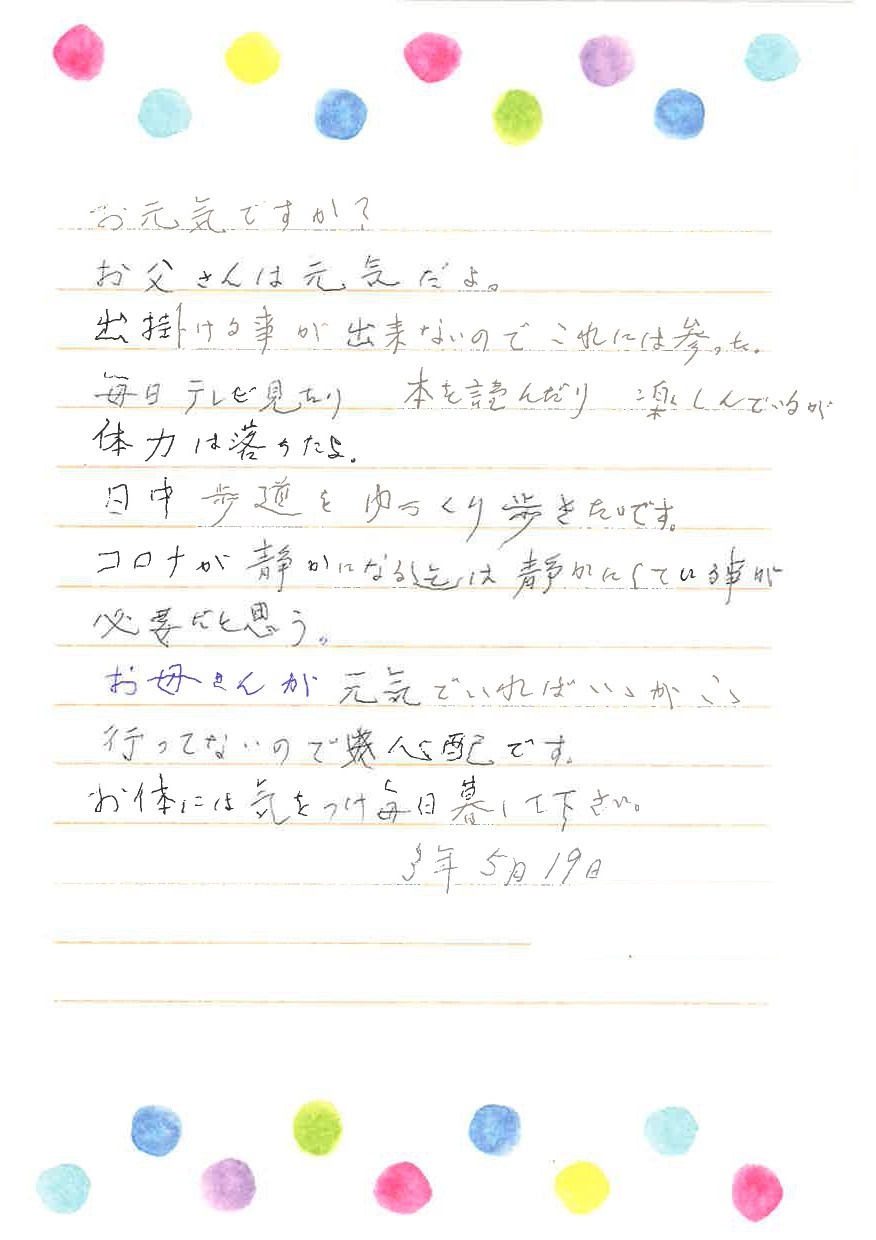 お元気ですか?
お父さんは元気だよ。
出掛ける事が出来ないのでこれには参った。
毎日テレビ見たり 本を読んだり 楽しんでいるが
体力は落ちたよ。
日中歩道をゆっくり歩きたいです。
コロナが静かになる迄は静かにしている事が
必要だと思う。
お母さんが元気でいればいゝが
行ってないので 心配です。
お体には気をつけ毎日暮して下さい。
3年5月19日